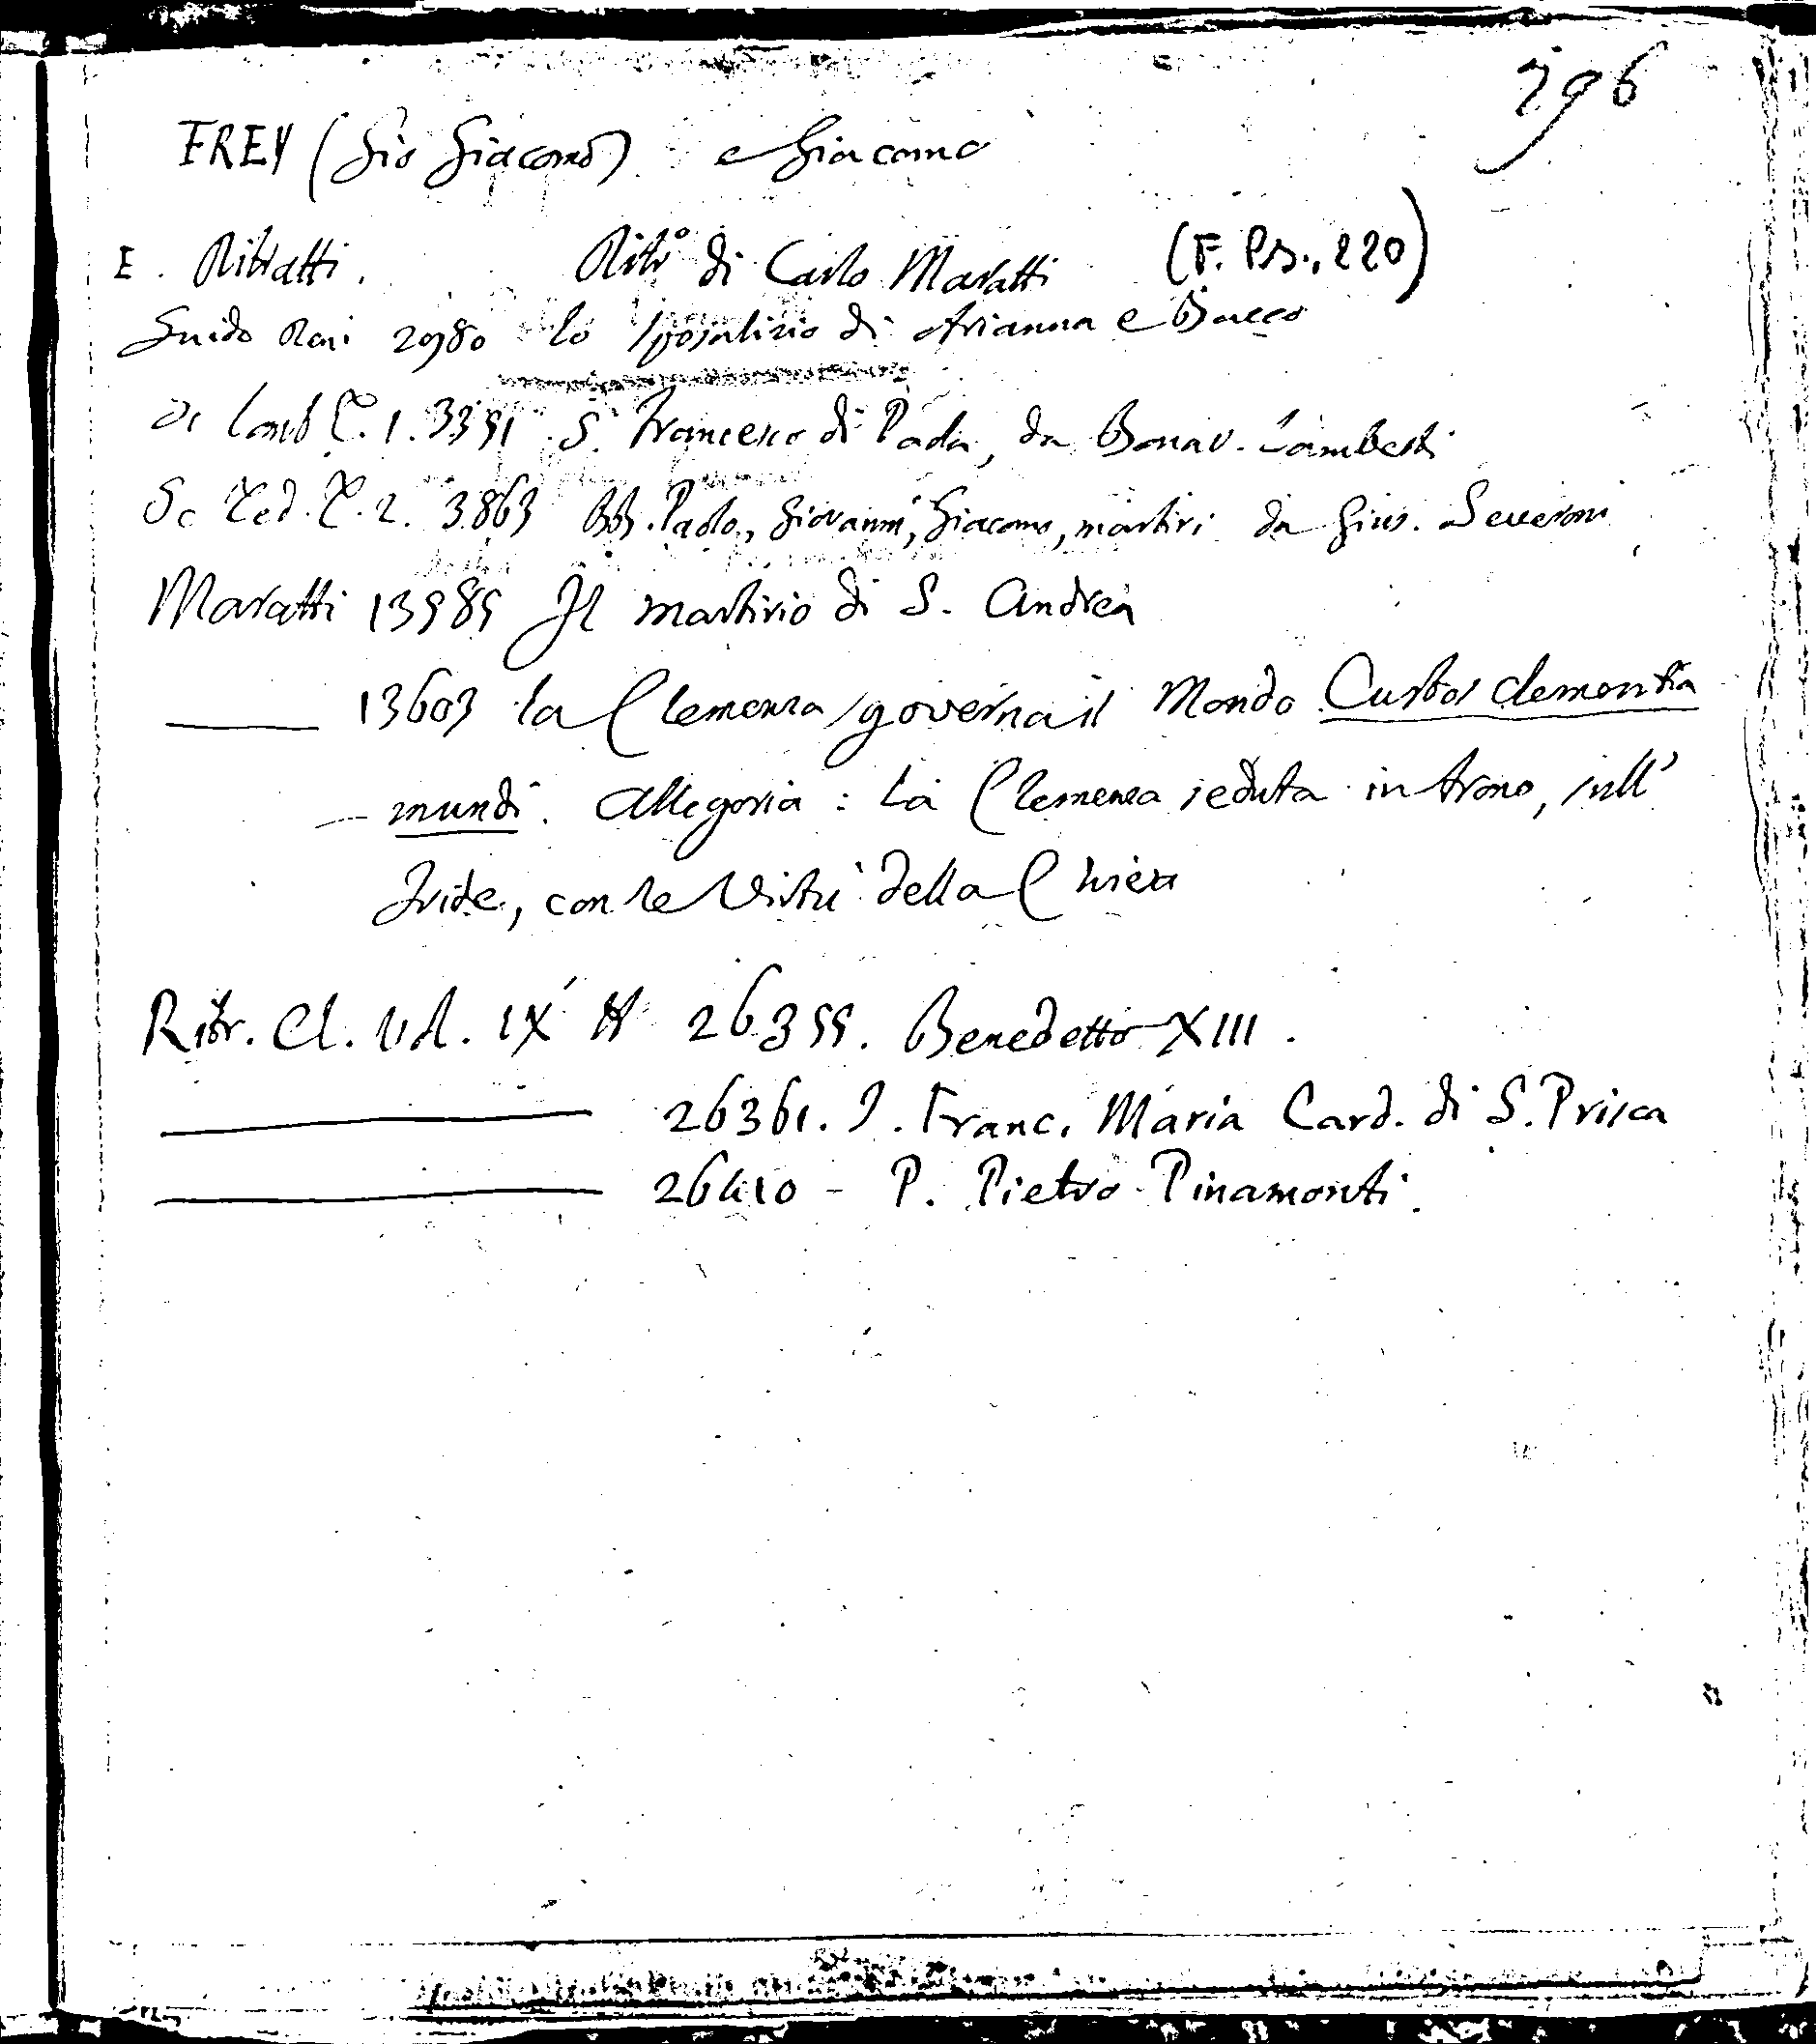 296
FREY (Gio Giacomo) e Giacomo
E. Ritratti. Ritr° di Carlo Maratti (F. Ps., 220)
Guido Reni 2980 lo sposalizio di Arianna e Bacco
Lomb C. 1. 3391 S. Francesco di Paola, da Bonav. Lamberti
Sc Ted. C. 2. 3863 BB. Paolo, Giovanni, Giacomo, martiri da Gius. Severoni
Maratti 13585 Il martirio di S. Andrea
13603 la Clemenza governa il Mondo Custos clementia
mundi. Allegoria: La Clemenza seduta in trono, sull'
Iride, con le Virtù della Chiesa
Ritr. Cl. Vol. IX N 26355. Benedetto XIII.
26361. Franc. Maria Card. di S. Prisca
26410 - P. Pietro Pinamonti.